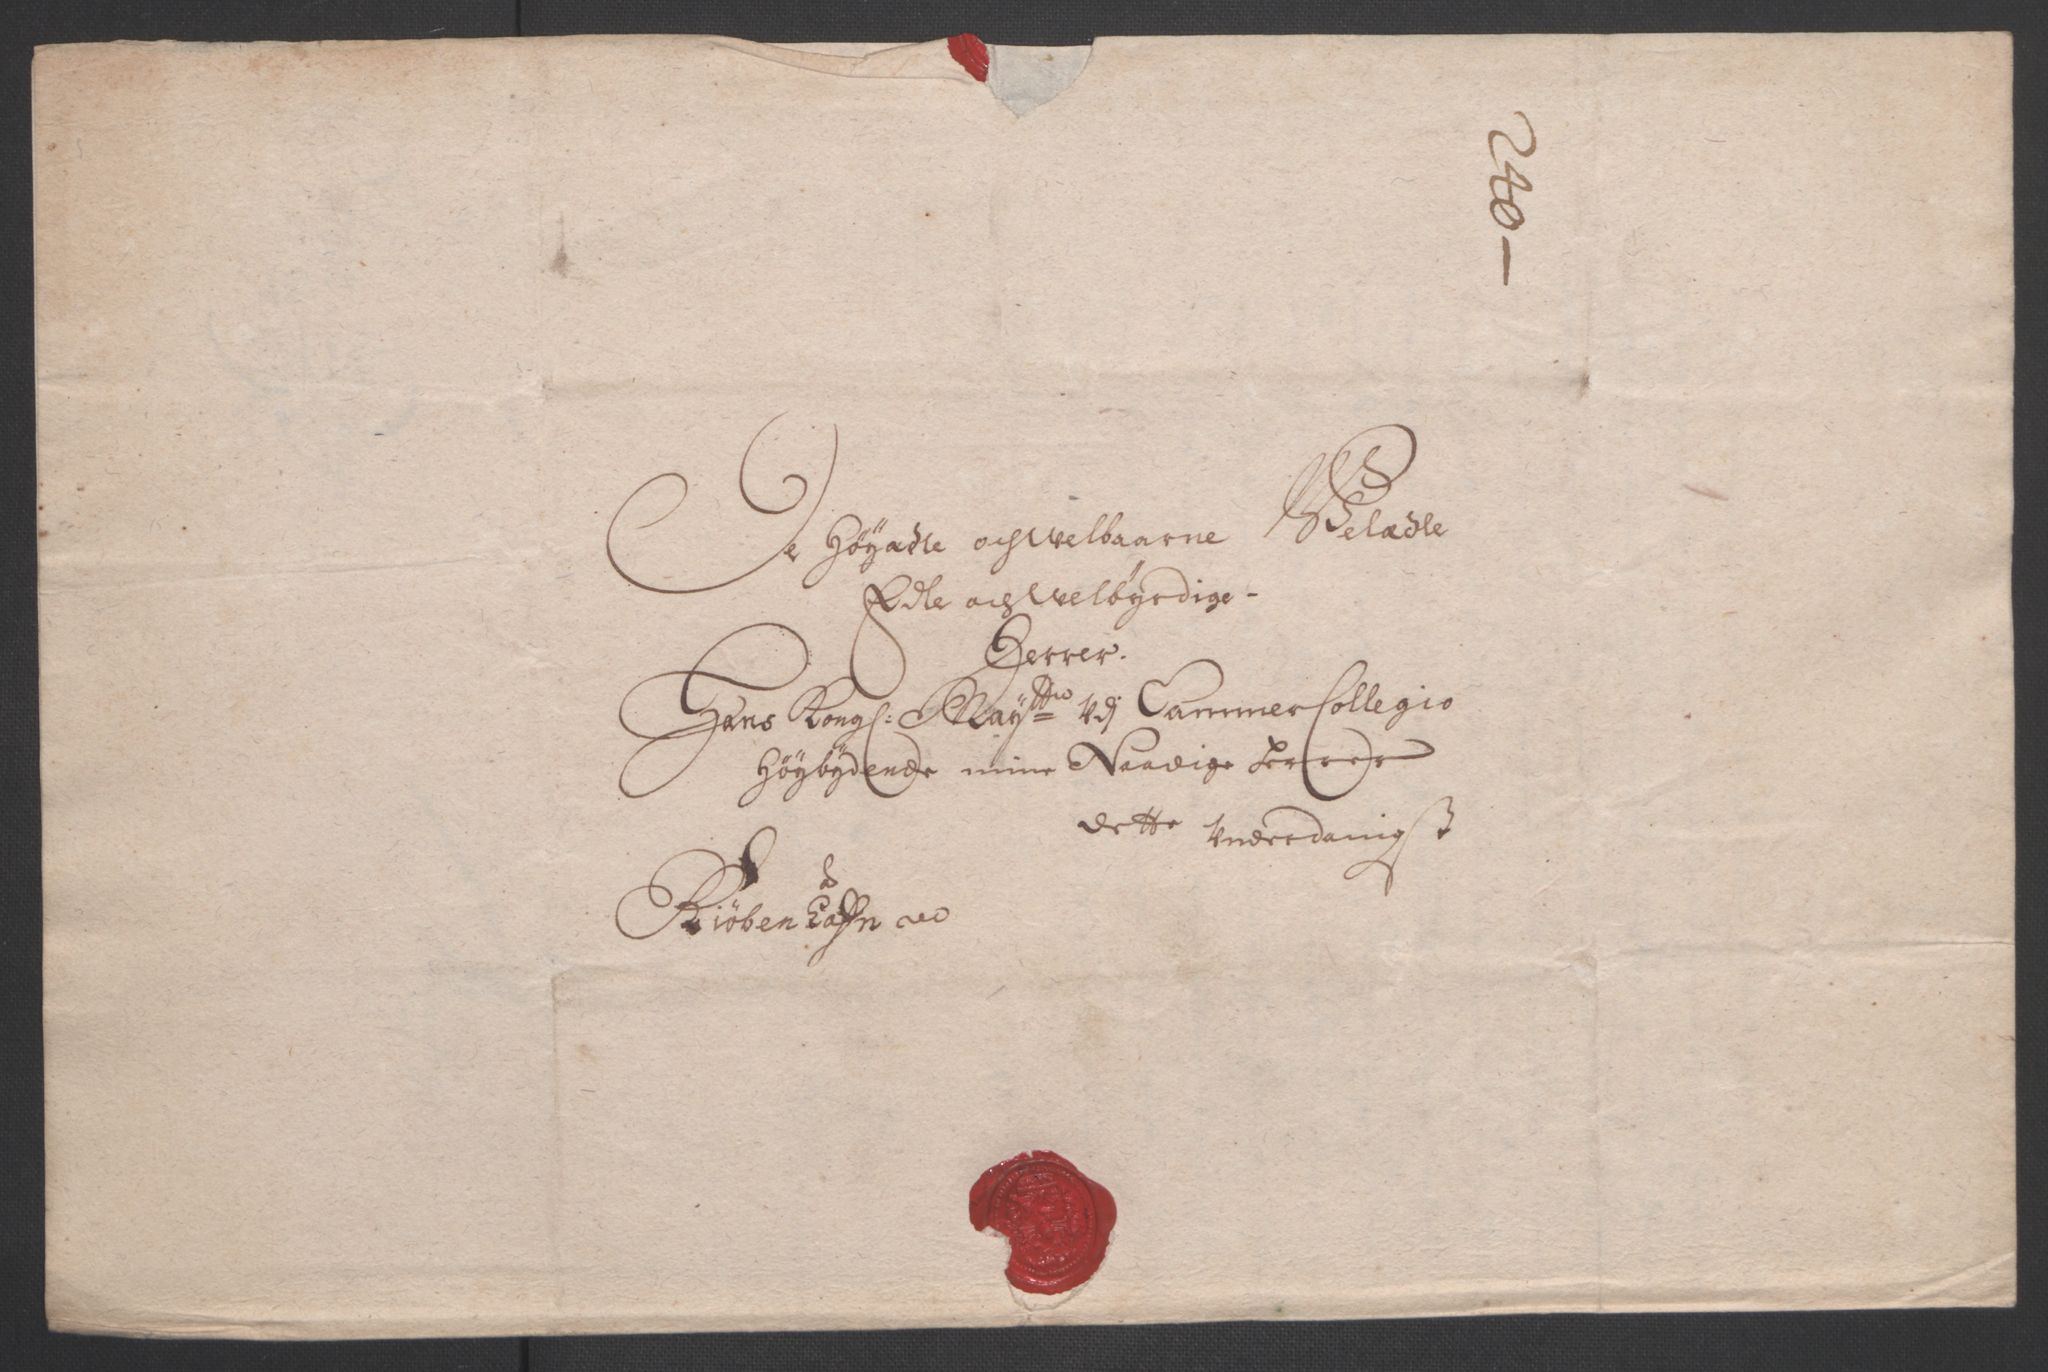 240 –
De Høyædle och Welbaarne Velædle
Edle och Welbyrdige –
Herrer.
Hans Kongl: May:tts vdj Cammer Collegio
Høybydende mine Naadige Herrer
dette Vnderdanigst
a
Kiøbenhaffn